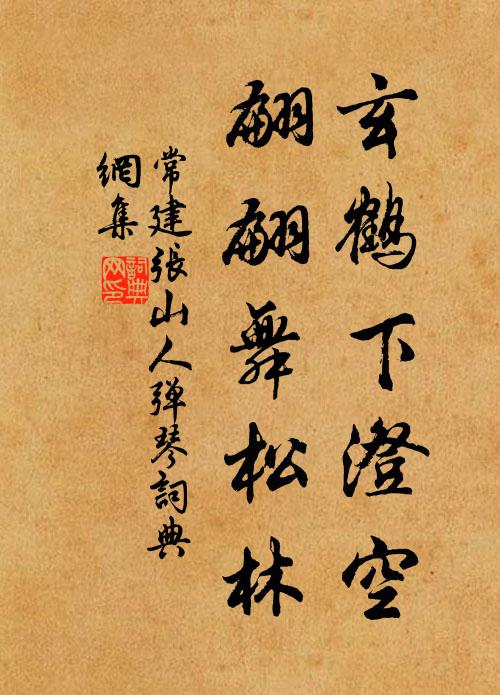 玄鶴下澄空
翩翩舞松林
常建張山人弹琴詞典
網集
詞典
网印